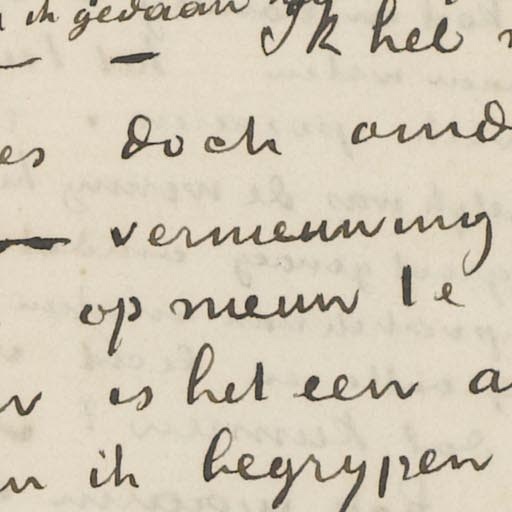 ik gedaan
— — Ik heb
es doch omd
— vernieuwing
op nieuw te
is het een a
ik begrypen